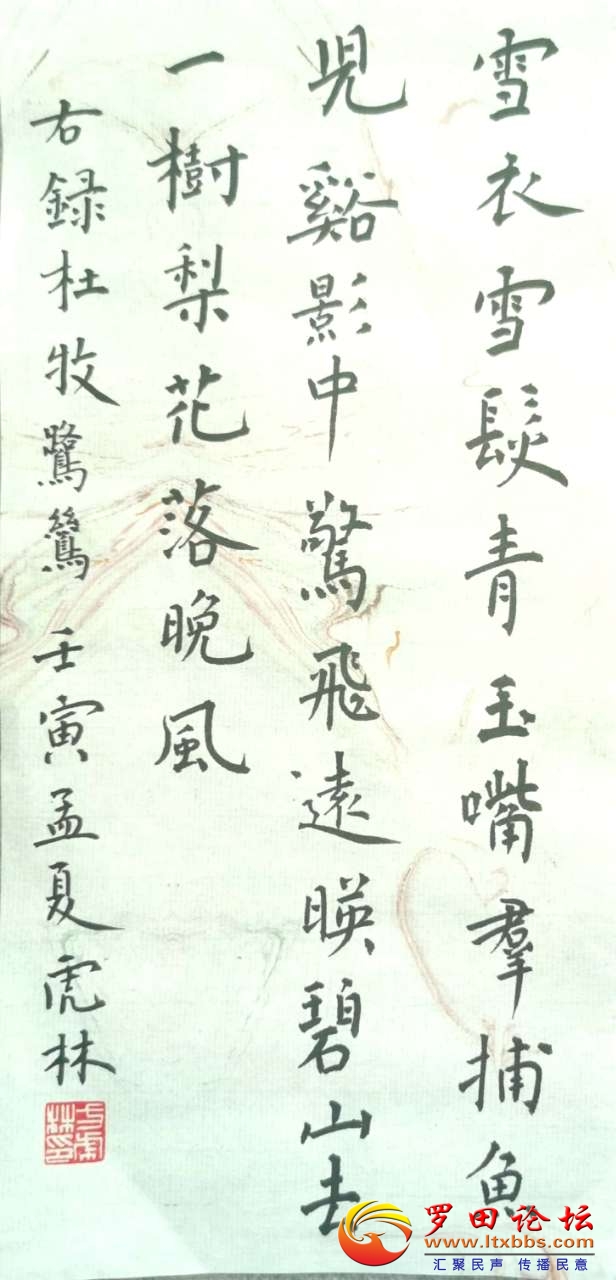 雪衣雪髮青玉嘴羣捕魚
児谿影中驚飛遠暎碧山去
一樹梨花落晚風
右録杜牧鷺鷥壬寅孟夏虎林
罗田论坛
www.ltxbbs.com
汇聚民声 传播民意